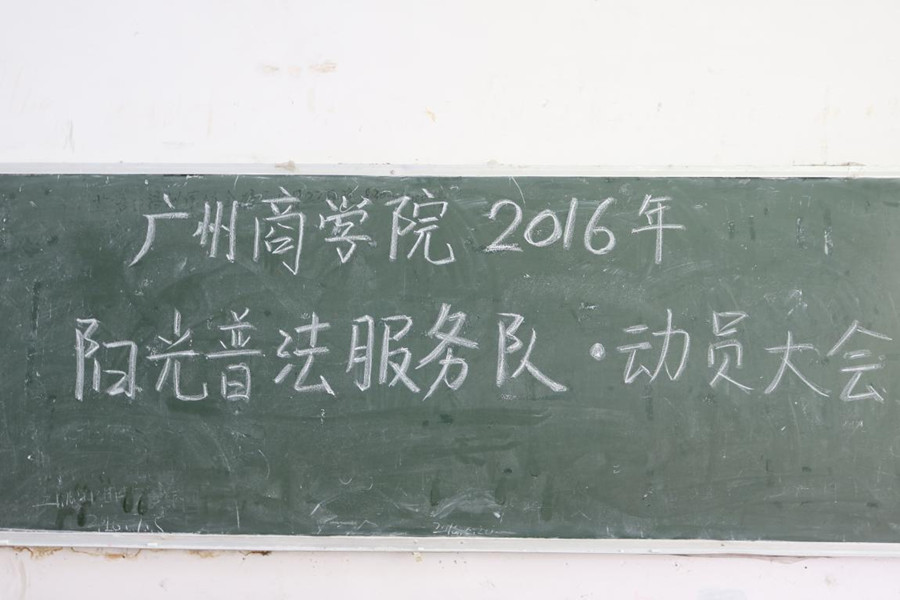 广州商学院 2016年
阳光普法服务队·动员大会